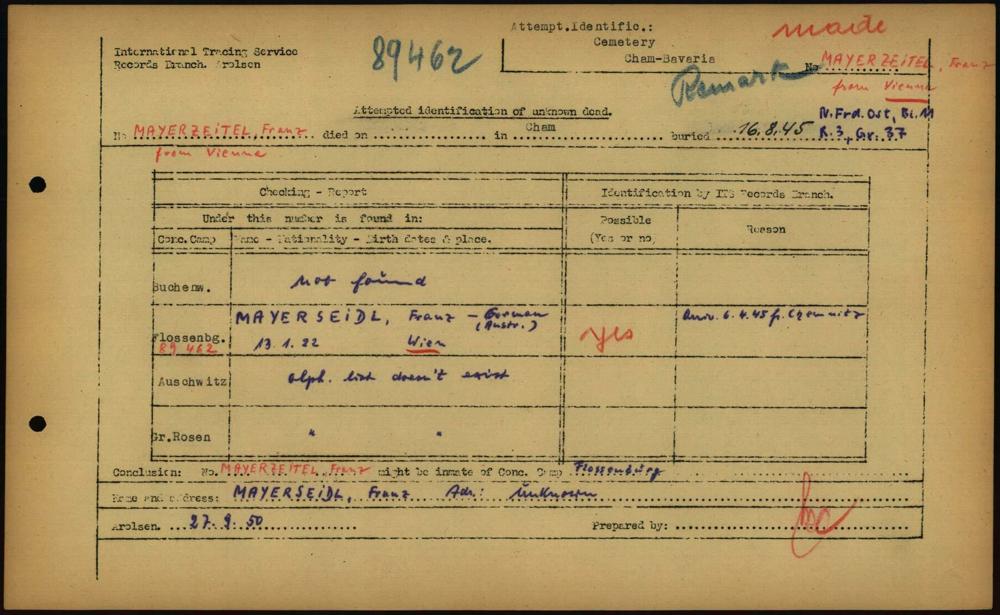 Attempt.Identific.:
made
International Tracing Service
89462
Cemetery
Records Branch. Arolsen
Cham-Bavaria
No MAYERZEITEL, Franz
Remark
from Vienna
Attempted identification of unknown dead.
N.Frd.Ost, Bi.M
No MAYERZEITEL, Franz died on in Cham buried 16.8.45 R.3, Gr. 37
from Vienna
Checking - Report
Identification by ITS Records Branch.
Under this number is found in:
Possible
(Yes or no)
Reason
Conc.Camp
Name - Nationality - Birth dates & place.
Buchenw.
not found
MAYERSEIDL, Franz - German
(Austr.)
Arriv. 6.4.45 fr. Chemnitz
Flossenbg.
89 462
13.1.22 Wien
yes
Auschwitz
alph. list doesn't exist
Gr.Rosen
" "
Conclusion: No. MAYERZEITEL, Franz might be inmate of Conc. Camp Flossenburg
Name and address: MAYERSEIDL, Franz Adr.: unknown
Arolsen. 27.9.50
Prepared by: